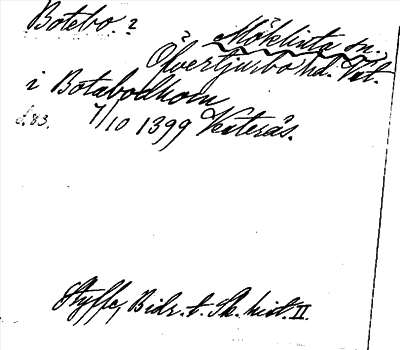 Botebo. ?
Möklinta sn.,
Övertjurbo hd. Vst.
i Botabodhom
d. 83.
7/10 1399 Västerås.
Styffe, Bidr. t. Sk. hist. II.